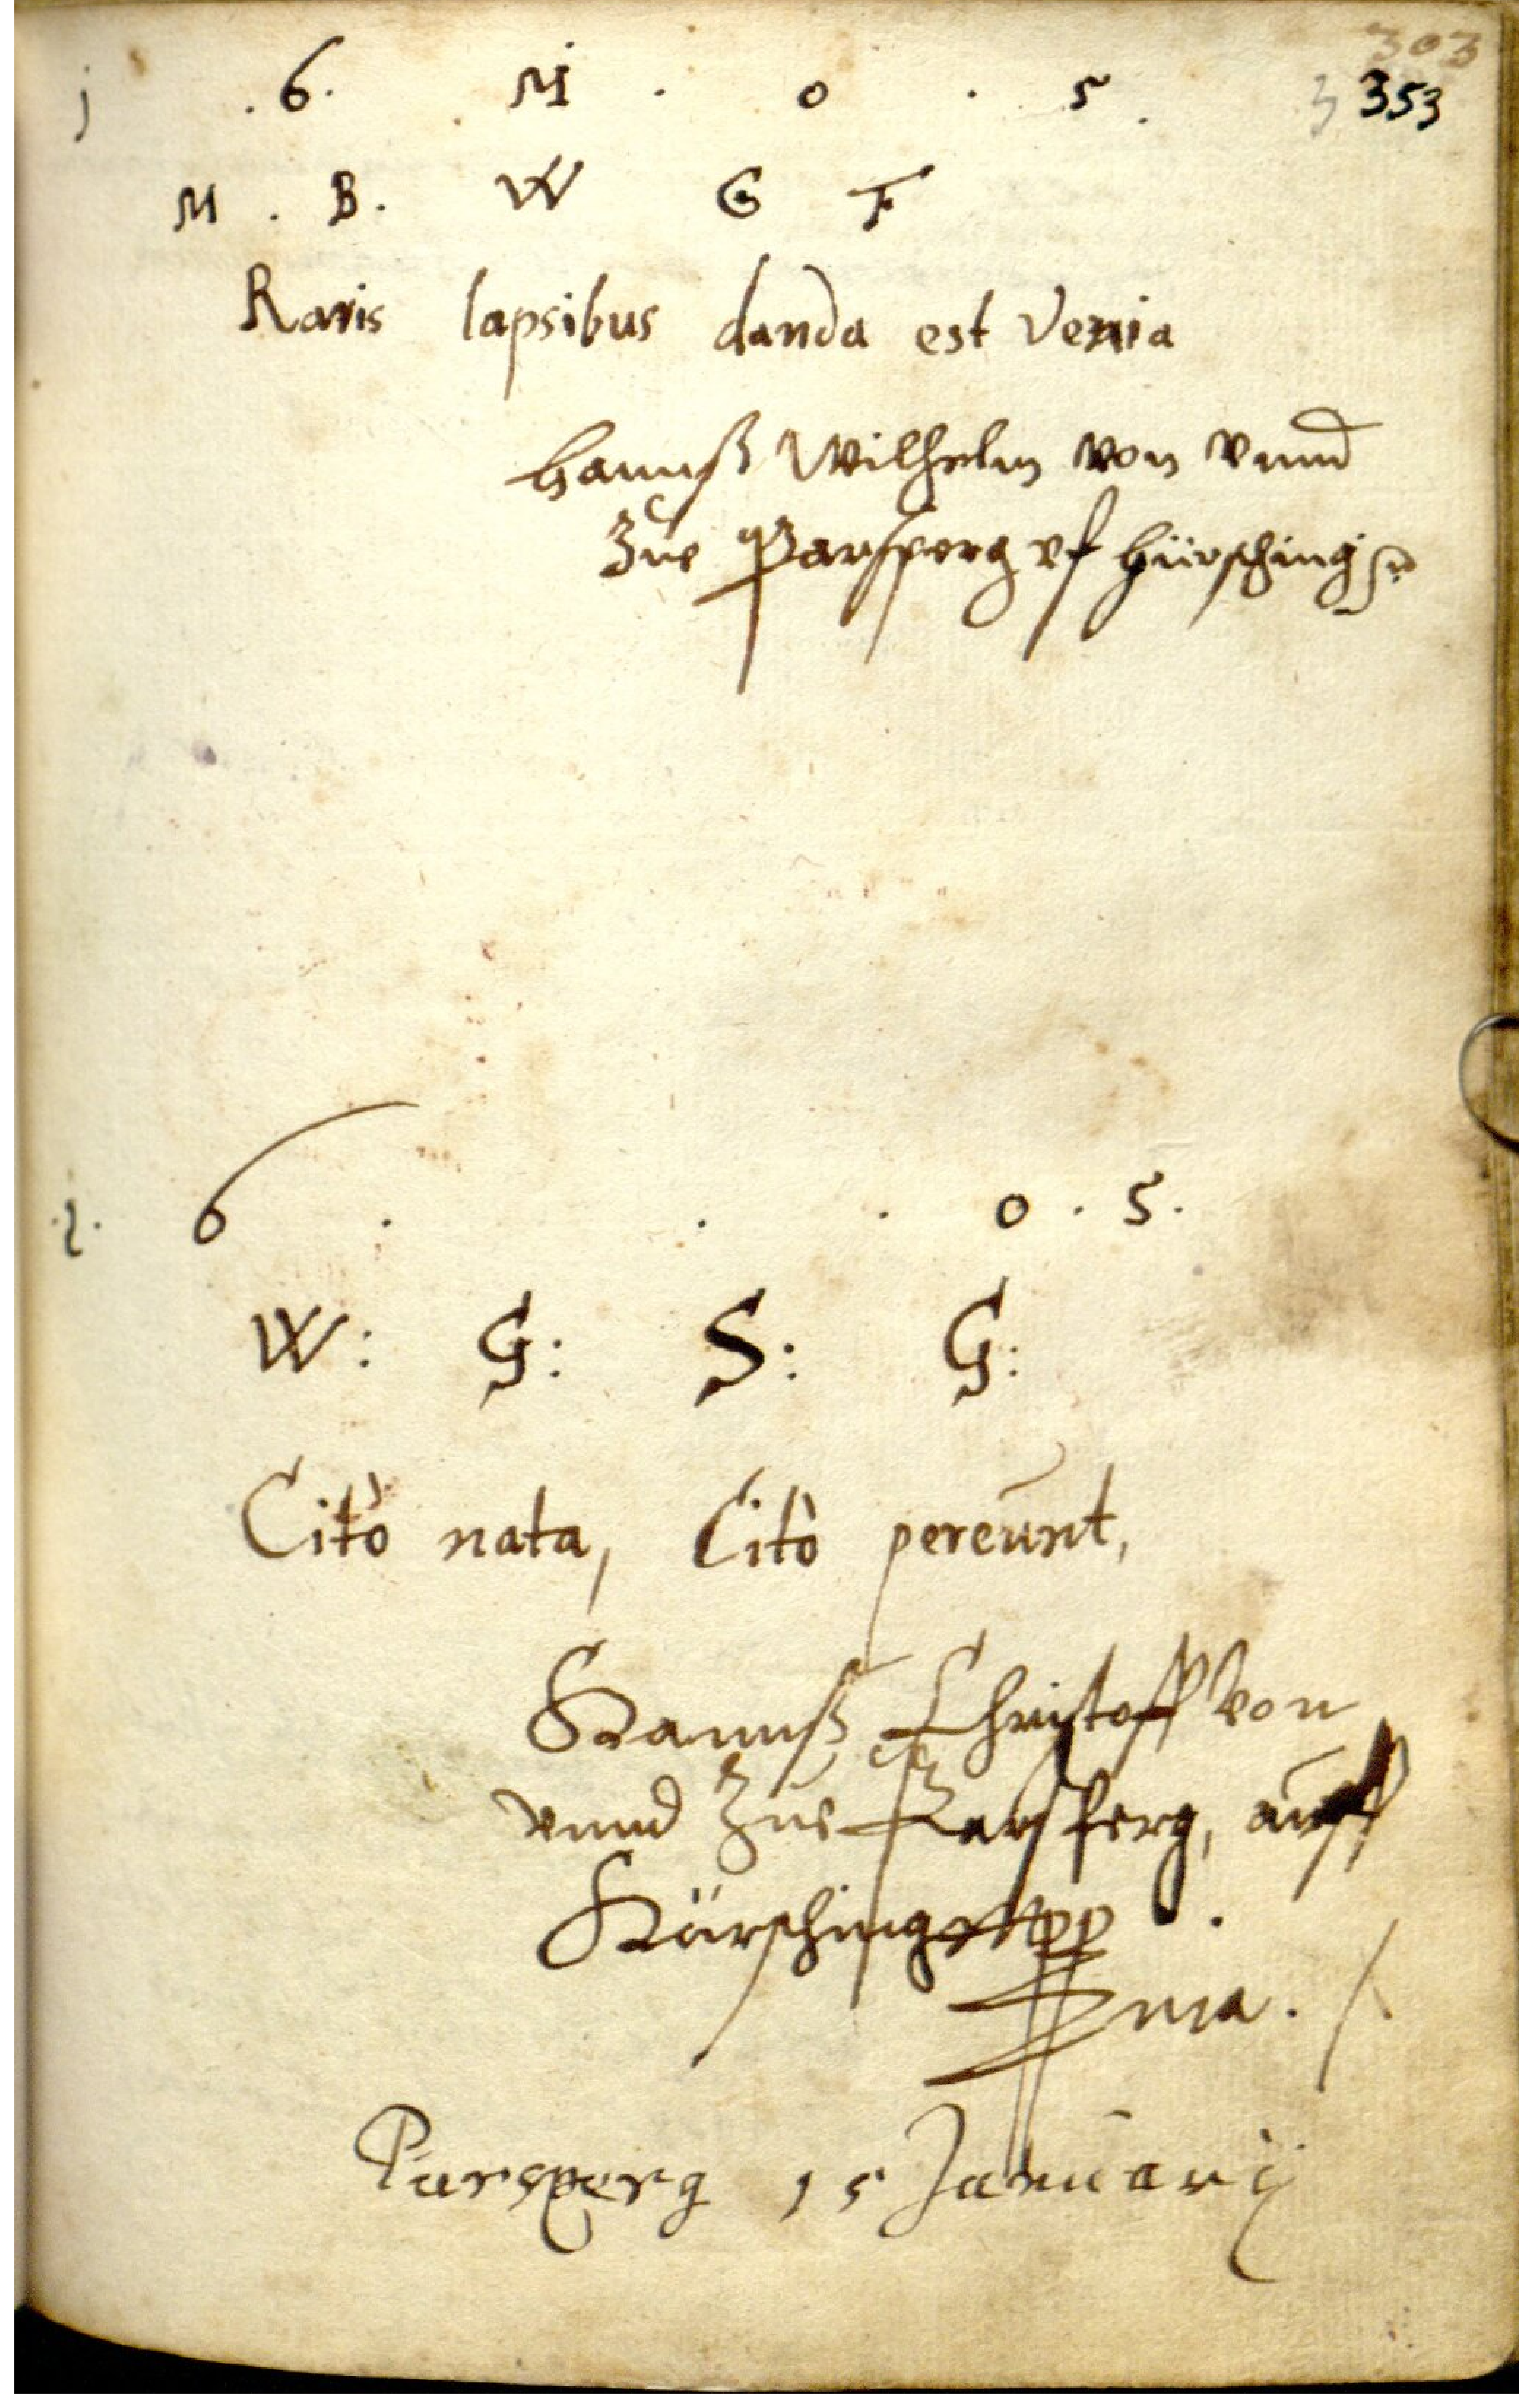 303
j . 6 . M . 0 . 5 . 353
M . B . W G F
Raris lapsibus danda est Venia
Hannß Wilhelm von vnnd
zue Parsperg vf Hürsching
. 1 . 6 . . . 0 . 5 .
W : G : S : G :
Citò nata, Citò pereunt,
Hannß Christoff von
vnnd zue Parsperg, auff
Hürsching
mia .
Parsperg 15 Januarij